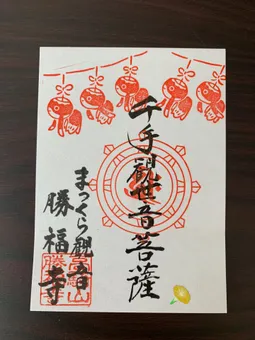 千手観世音菩薩
まつくら観音
勝福寺